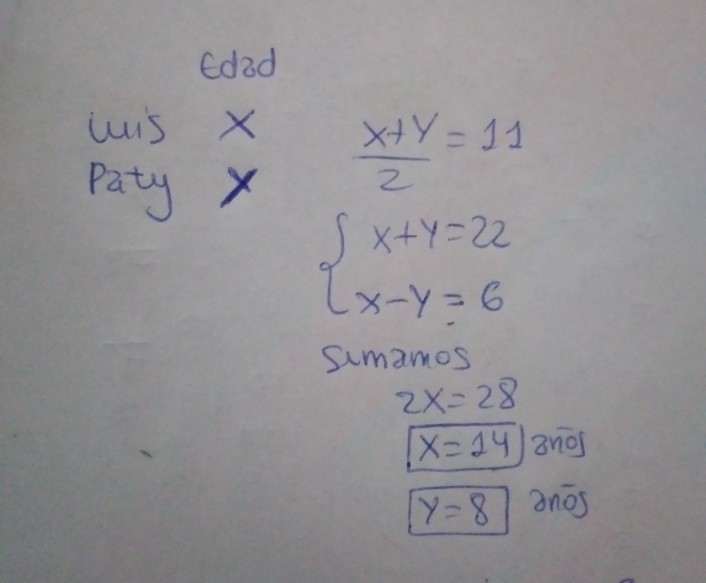 Edad
Luis X
Paty X
X+Y = 11
2
X+Y=22
X-Y = 6
Sumamos
2X=28
X=14 años
Y=8 años